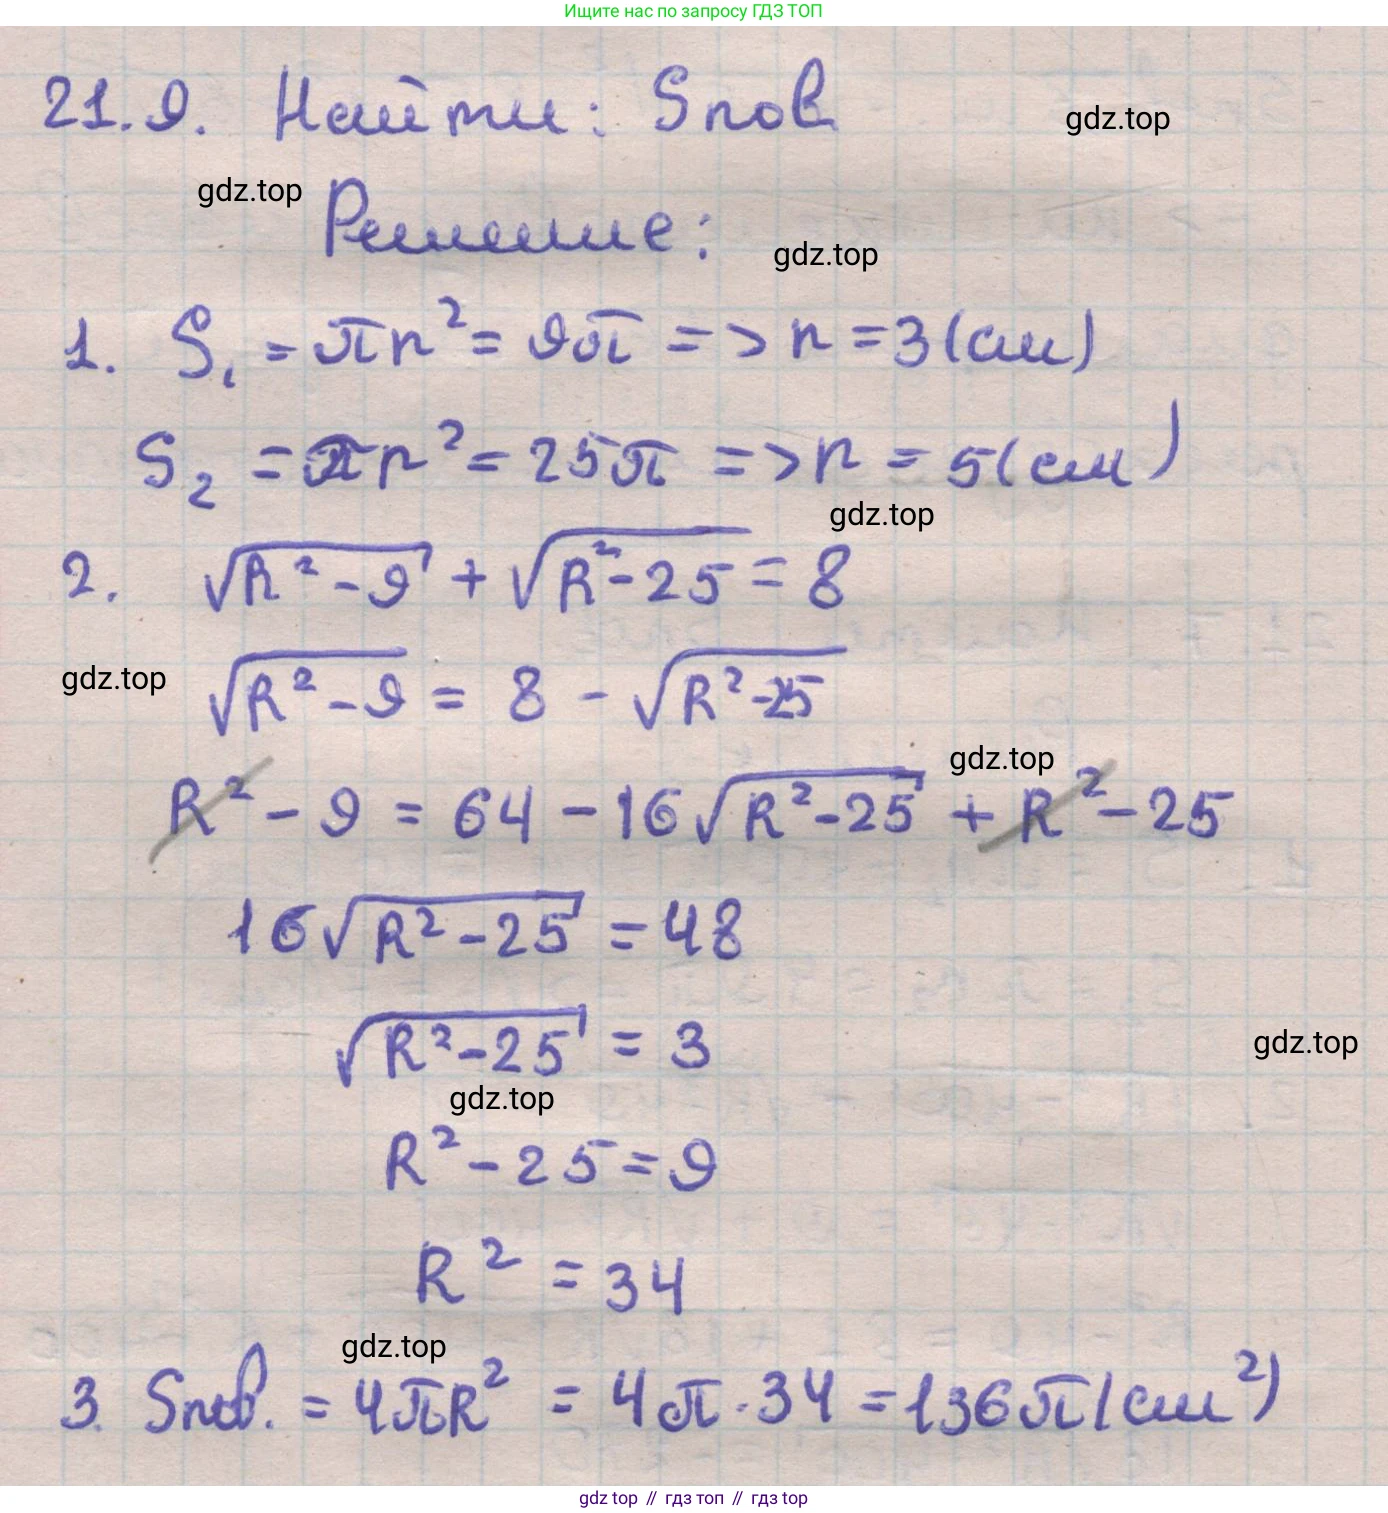 Ищите нас по запросу ГДЗ ТОП
21.9. Найти: Sпов
gdz.top
gdz.top
Решение:
gdz.top
1. S₁ = πr² = 9π => r = 3(см)
S₂ = πr² = 25π => r = 5(см)
gdz.top
2. √(R² - 9) + √(R² - 25) = 8
gdz.top
√(R² - 9) = 8 - √(R² - 25)
gdz.top
R² - 9 = 64 - 16√(R² - 25) + R² - 25
16√(R² - 25) = 48
√(R² - 25) = 3
gdz.top
gdz.top
R² - 25 = 9
R² = 34
gdz.top
3. Sпов. = 4πR² = 4π · 34 = 136π(см²)
gdz top // гдз топ // гдз top